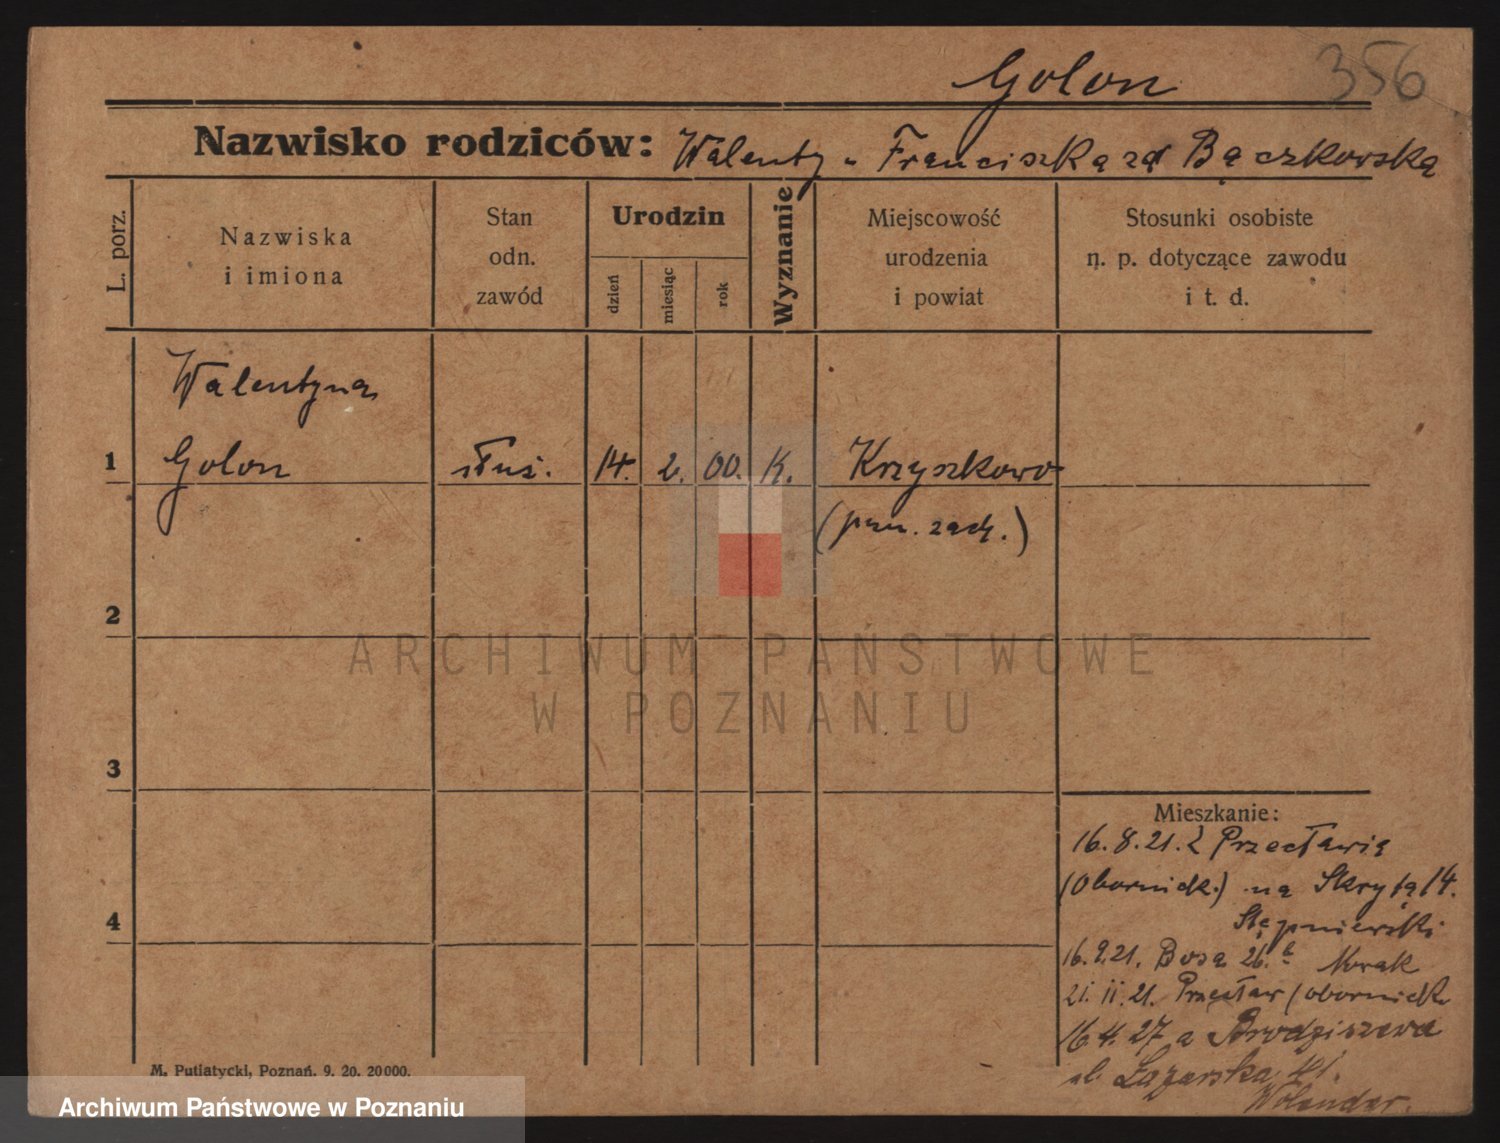 Golon
356
Nazwisko rodziców: Walenty u Franciszka zd Bączkowska
L. porz.
Nazwiska
i imiona
Stan
odn.
zawód
Urodzin
dzień
miesiąc
rok
Wyznanie
Miejscowość
urodzenia
i powiat
Stosunki osobiste
n. p. dotyczące zawodu
i t. d.
Walentyna
1 Golon służ. 14. 2. 00. K. Krzyszkowo
(pzn. zach.)
2
3
4
Mieszkanie:
16. 8. 21. z Przecławia
(Obornick.) na Skryta 14.
Stępniewski
16. 9. 21. Bosa 26. Nowak
21. 11. 21. Przecław (obornick
16. 4. 27 a Brodziszewa
ul. Łazarska
Wolender.
M. Putiatycki, Poznań. 9. 20. 20000.
ARCHIWUM PAŃSTWOWE
W POZNANIU
Archiwum Państwowe w Poznaniu